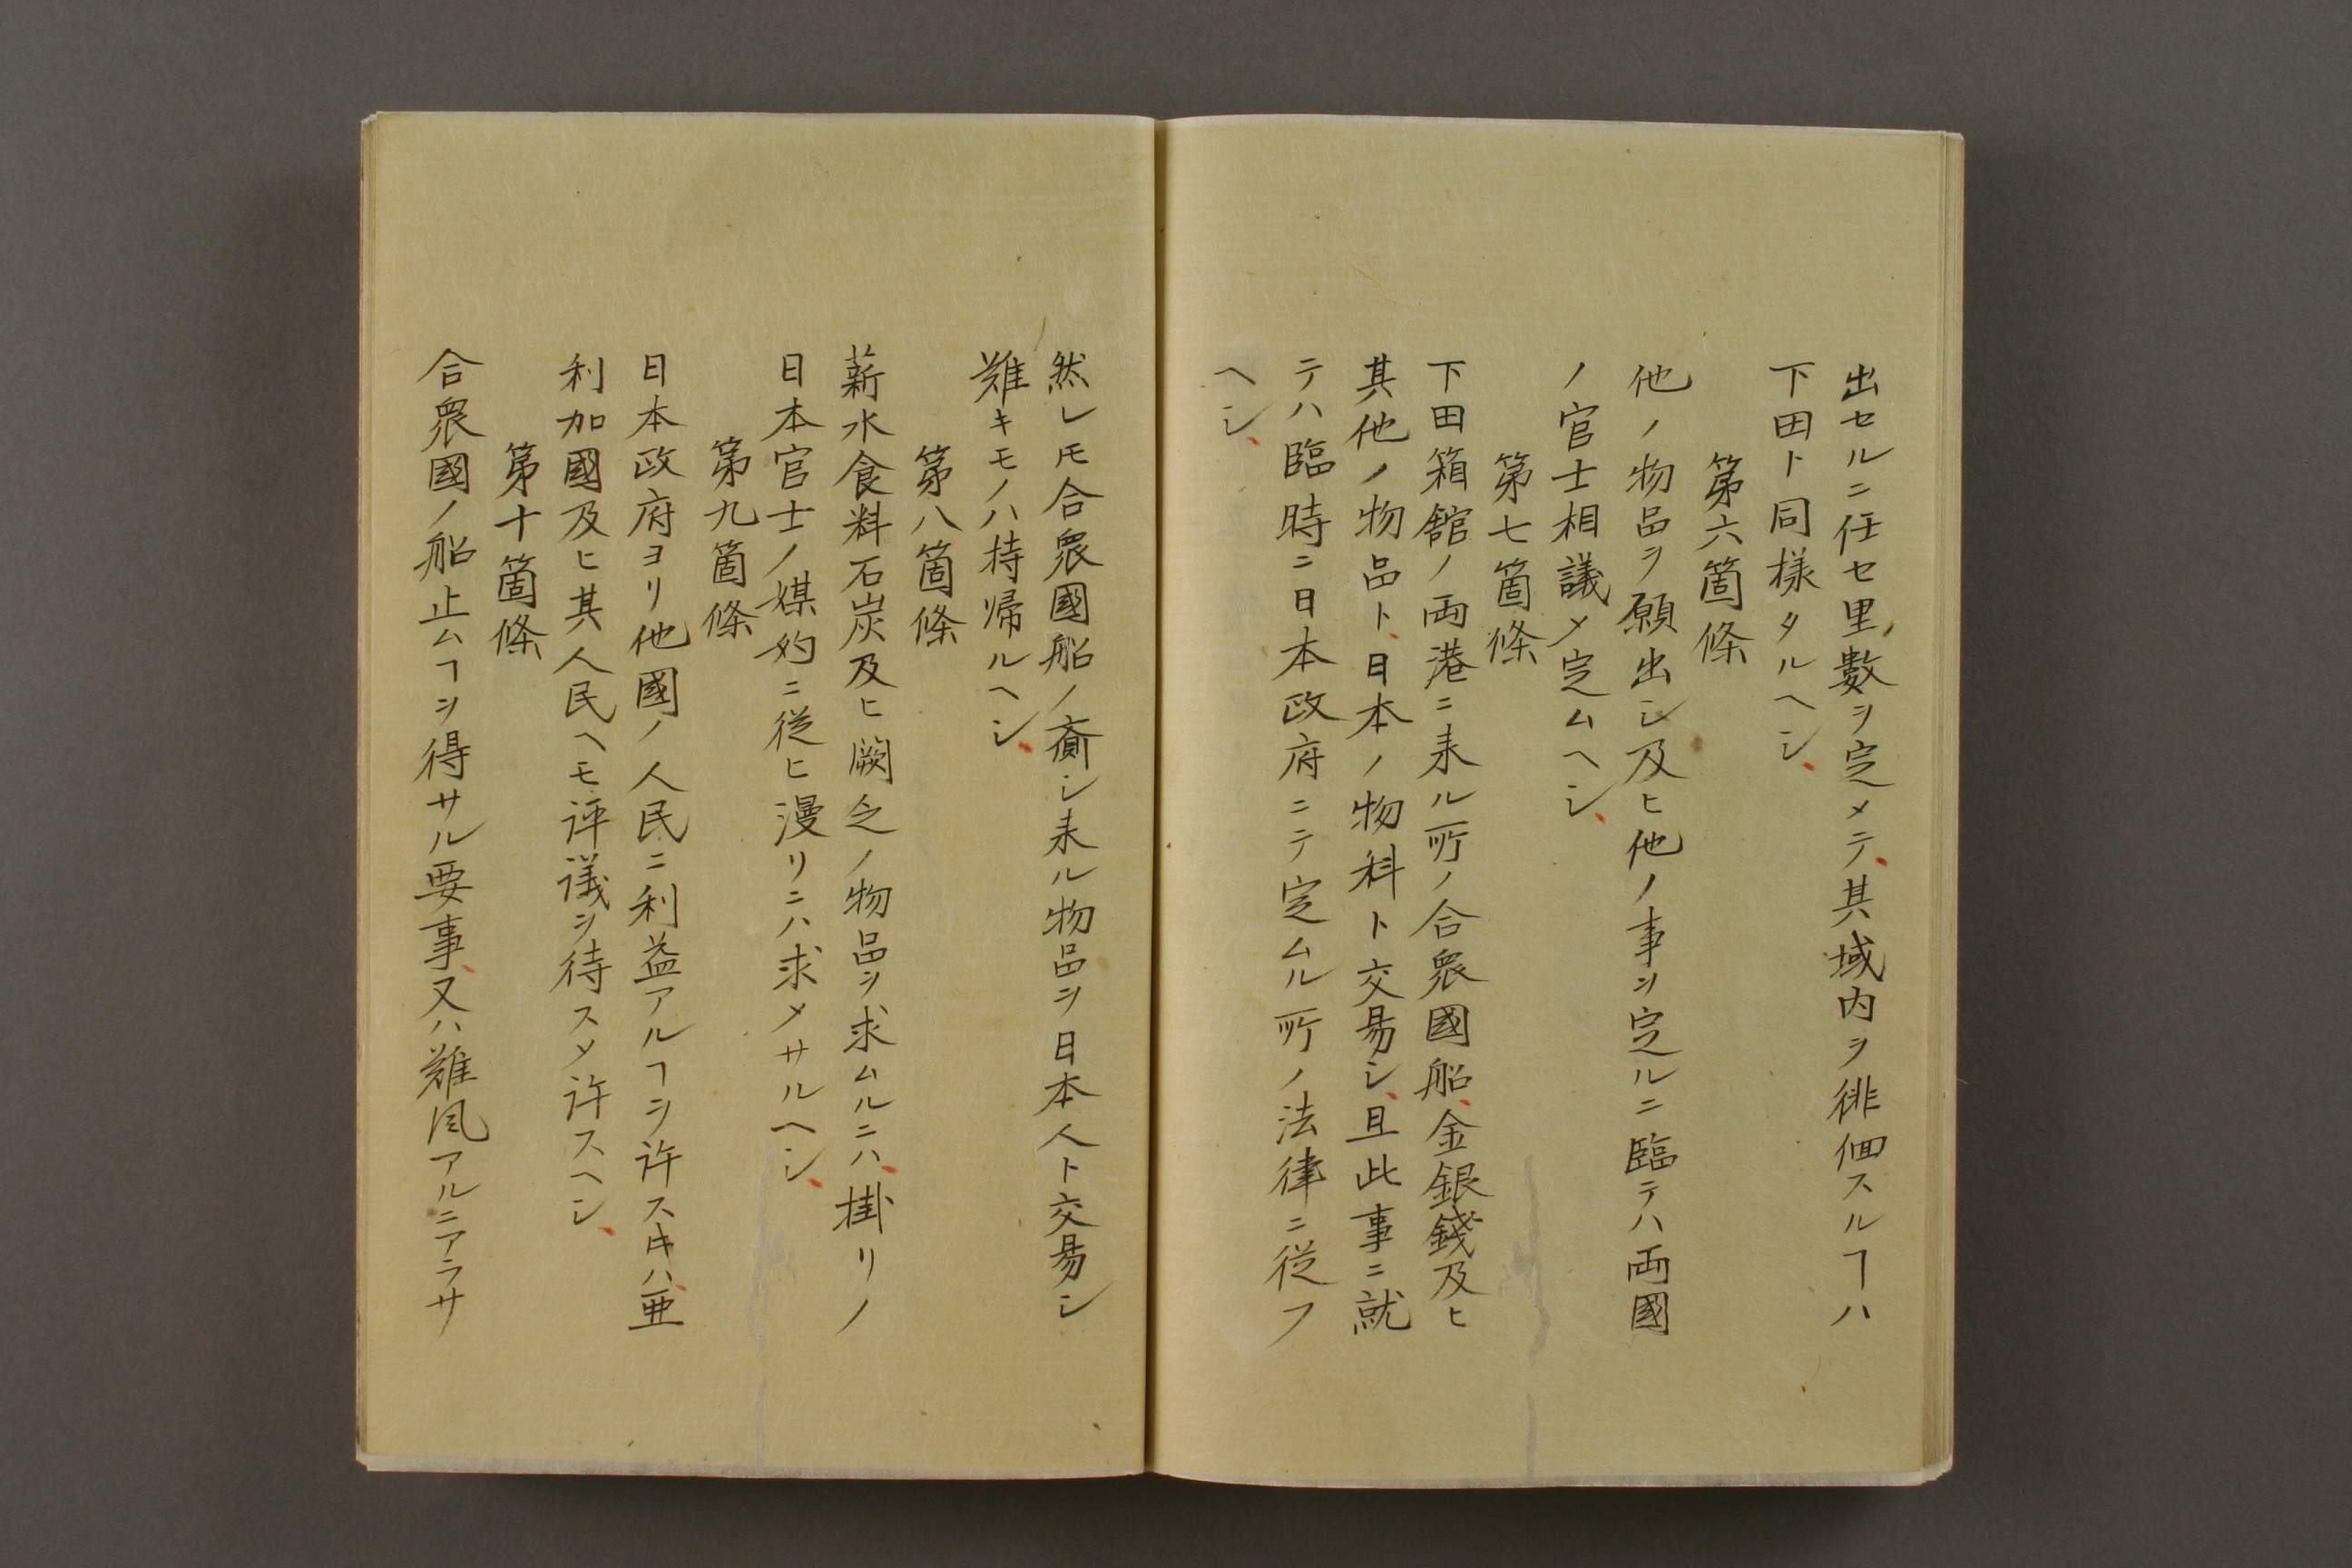 出セルニ任セ里數ヲ定メテ、其域内ヲ徘徊スルヿハ
下田ト同樣タルヘシ、
第六箇條
他ノ物品ヲ願出シ及ヒ他ノ事ヲ定ルニ臨テハ両國
ノ官士相議〆定ムヘシ、
第七箇條
下田箱舘ノ両港ニ来ル所ノ合衆國船、金銀錢及ヒ
其他ノ物品ト、日本ノ物料ト交易シ、且此事ニ就
テハ臨時ニ日本政府ニテ定ムル所ノ法律ニ從フ
ヘシ、
然レ𪜈合衆國船ノ齎シ来ル物品ヲ日本人ト交易シ
難キモノハ持帰ルヘシ、
第八箇條
薪水食料石炭及ヒ闕乏ノ物品ヲ求ムルニハ、掛リノ
日本官士ノ媒妁ニ從ヒ漫リニハ求メサルヘシ、
第九箇條
日本政府ヨリ他國ノ人民ニ利益アルヿヲ許スキハ、亜
利加國及ヒ其人民ヘモ評議ヲ待ス〆許スヘシ、
第十箇條
合衆國ノ船止ムヿヲ得サル要事、又ハ難風アルニアラサ